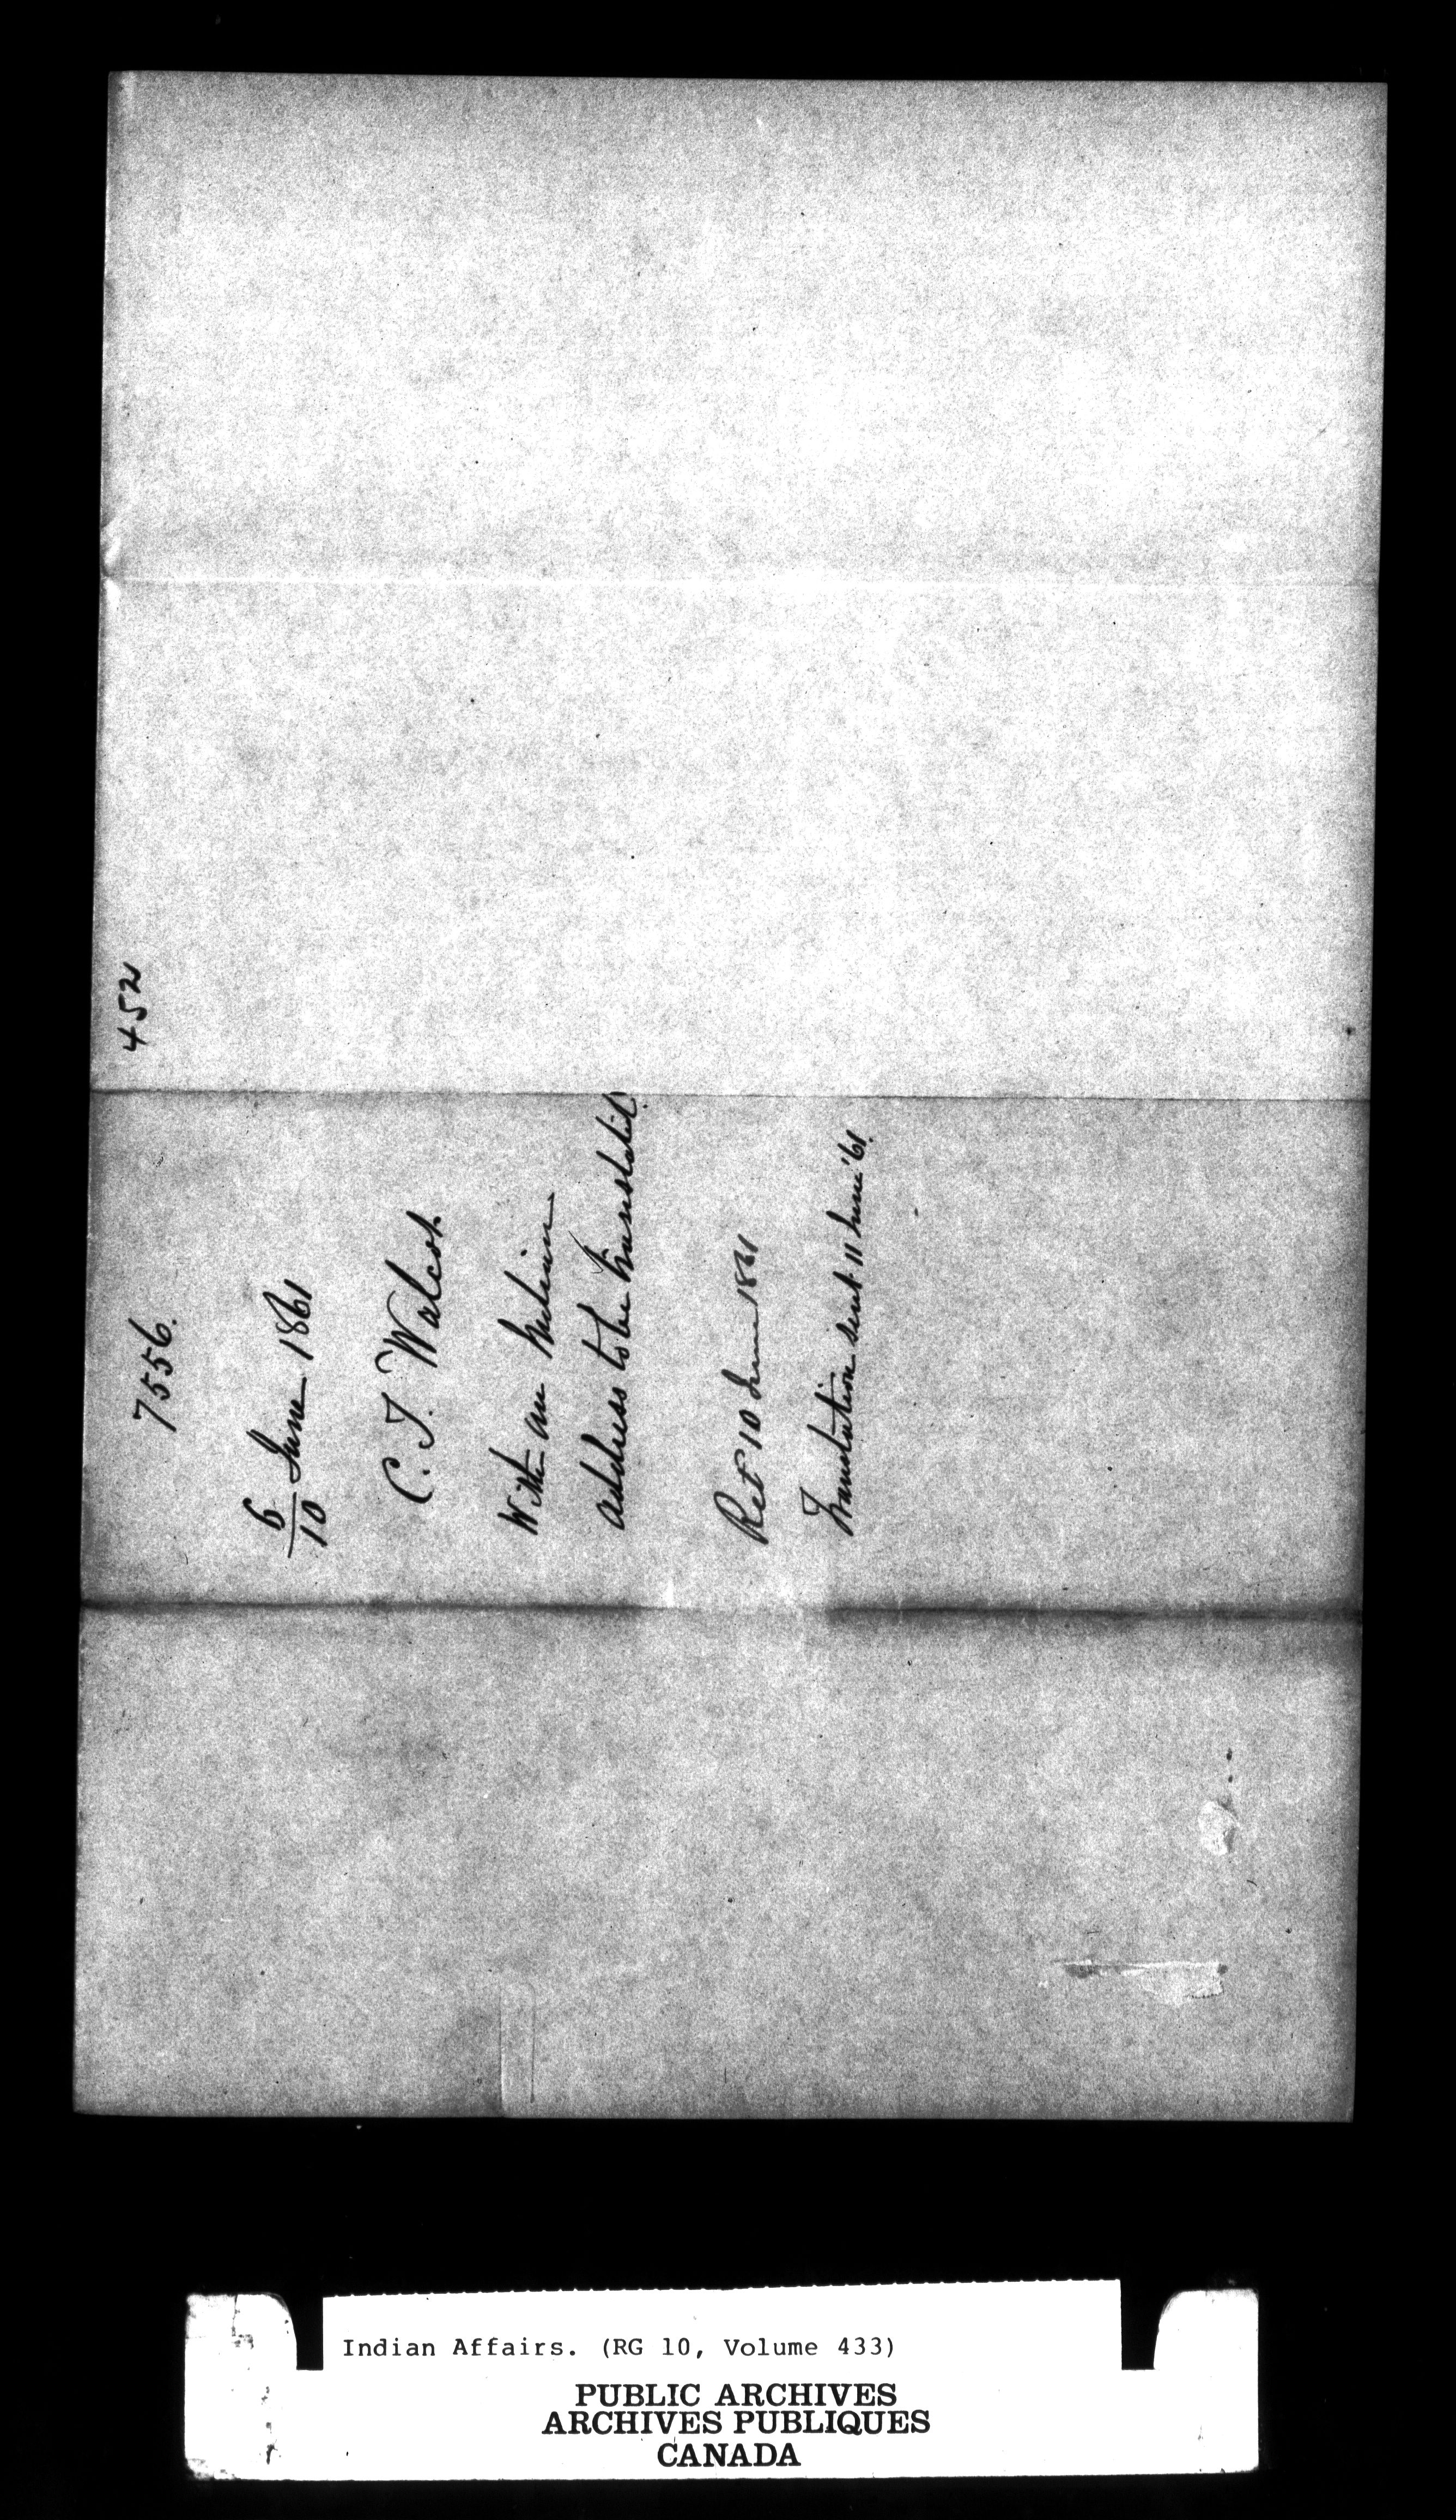 452
7556.
6/10 June 1861
C. T. Walcot
With an Indian
address to be translated.
Ret 10 June 1861
Translation sent 11 June '61.
Indian Affairs. (RG 10, Volume 433)
PUBLIC ARCHIVES
ARCHIVES PUBLIQUES
CANADA